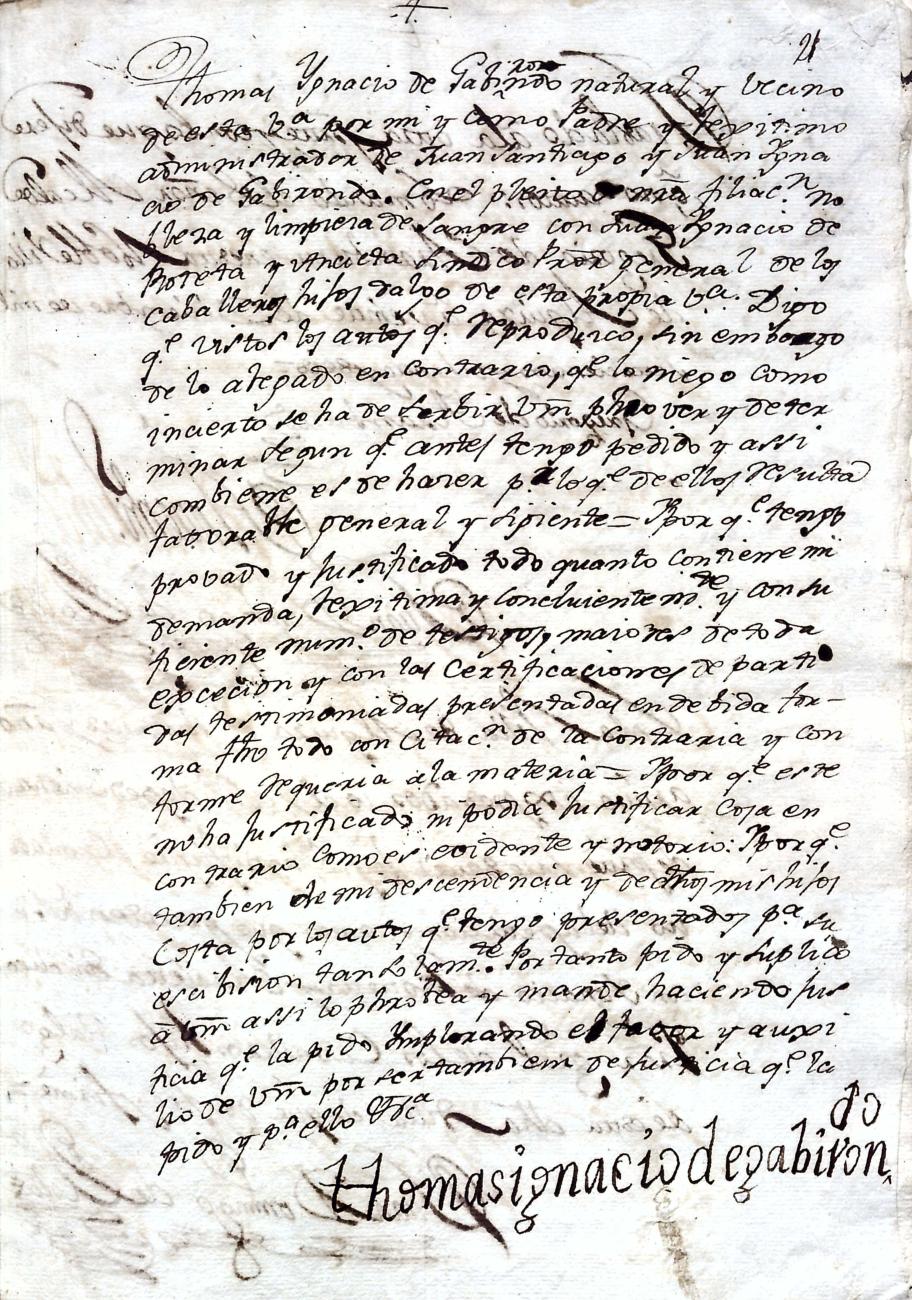 21
Thomas Ygnacio de Gabirondo natural y vecino
de esta Va por mi y como Padre y lexitimo
administrador de Juan Santiago y Juan Ygna
cio de Gabirondo. En el pleito de nra filiacn. no
bleza y limpieza de sangre con Juan Ygnacio de
Roteta y Sindico Pror general de los
caballeros hijos dalgo de esta propia Va. Digo
qe. vistos los autos qe. Reproduzco, sin embargo
de lo alegado en contrario, qe. lo niego como
incierto se ha de serbir Vm phrover y deter
minar segun qe. antes tengo pedido y assi
combiene es de hazer pr. lo qe. de ellos Resulta
faborable general y sigiente = Y por qe. tengo
provado y justificado todo quanto contiene mi
demanda, lexitima y concluientemte. y con su
ficiente numo. de testigos, maiores de toda
excecion y con las Certificaciones de parti
das testimoniadas presentadas en debida for-
ma fho todo con Citacn. de la Contraria y con
forme Requeria a la materia = Y por qe. este
no ha justificado ni podia justificar cosa en
contrario como es evidente y notorio: Y por qe.
tambien de mi descendencia y de dhos mis hijos
Costa por los autos qe. tengo presentados pa. su
escibision tan solamte. Por tanto pido y suplico
a Vm assi lo phrobea y mande haciendo jus
ticia qe. la pido Ymplorando el fabor y auxi
lio de Vm por ser tambiem de justicia qe. la
pido y pa. ello &a
thomas ignacio de gabiron
do